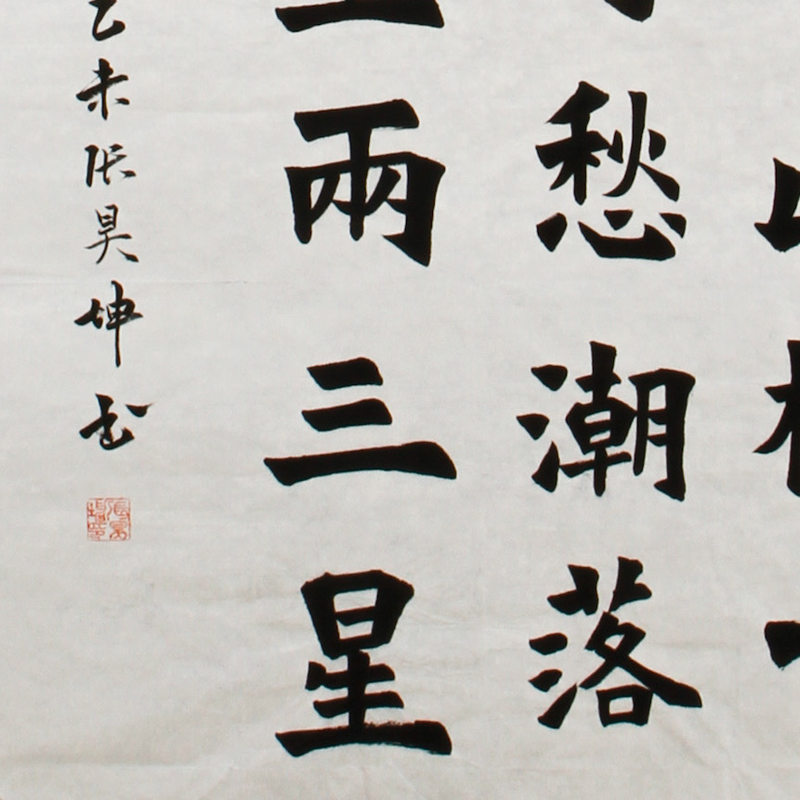 愁潮落
兩三星
乙未张昊坤书